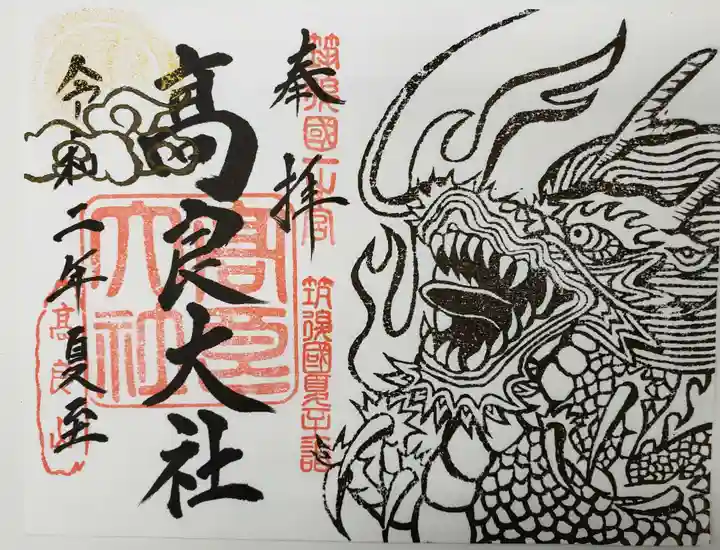 奉拝
筑後國一之宮
筑後國夏至詣
高良大社
高良大社
令和二年夏至
高良山